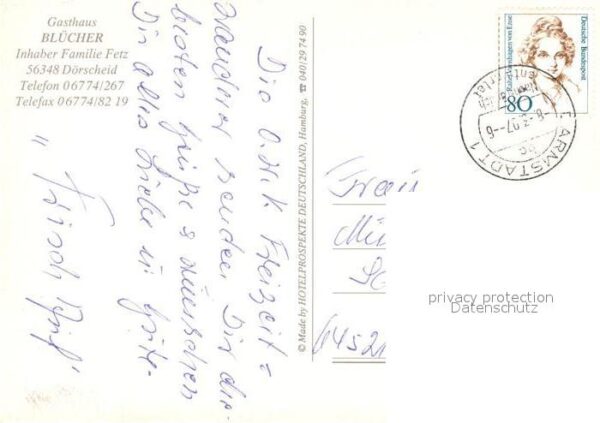 Gasthaus
BLÜCHER
Inhaber Familie Fetz
56348 Dörscheid
Telefon 06774/267
Telefax 06774/82 19
Die O.W.K Freizeit=
wanderer senden Dir die
besten Grüße & wünschen
Dir alles Liebe u. Gute.
" Frisch Auf "
© Made by HOTELPROSPEKTE DEUTSCHLAND, Hamburg, ☎ 040/29 74 90
Deutsche Bundespost
Rahel Varnhagen von Ense
80
DARMSTADT 1
Frau
6452
privacy protection
Datenschutz